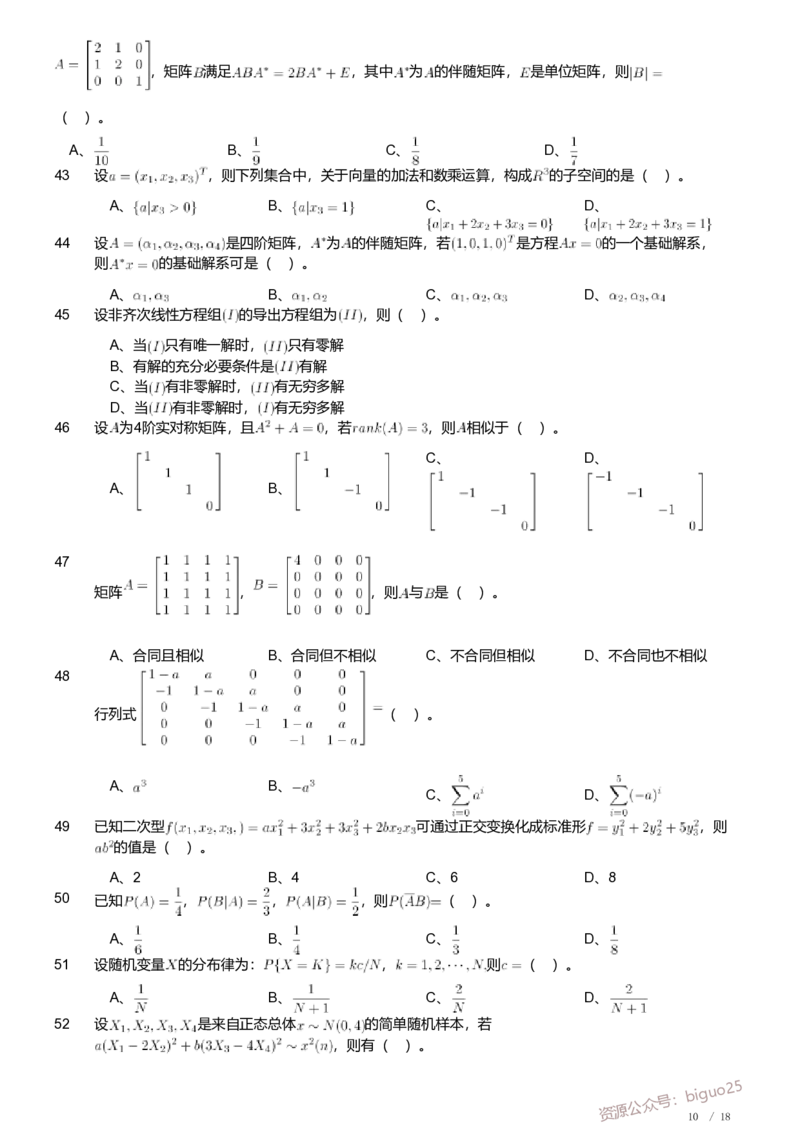 A = [2 1 0; 1 2 0; 0 0 1], 矩阵B满足ABA* = 2BA* + E, 其中A*为A的伴随矩阵, E是单位矩阵, 则|B| =
( )。
A、1/10 B、1/9 C、1/8 D、1/7
43 设a = (x₁, x₂, x₃)ᵀ, 则下列集合中, 关于向量的加法和数乘运算, 构成R³的子空间的是( )。
A、{a|x₃ > 0} B、{a|x₃ = 1} C、{a|x₁ + 2x₂ + 3x₃ = 0} D、{a|x₁ + 2x₂ + 3x₃ = 1}
44 设A = (α₁, α₂, α₃, α₄)是四阶矩阵, A*为A的伴随矩阵, 若(1, 0, 1. 0)ᵀ是方程Ax = 0的一个基础解系,
则A*x = 0的基础解系可是( )。
A、α₁, α₃ B、α₁, α₂ C、α₁, α₂, α₃ D、α₂, α₃, α₄
45 设非齐次线性方程组(I)的导出方程组为(II), 则( )。
A、当(I)只有唯一解时, (II)只有零解
B、有解的充分必要条件是(II)有解
C、当(I)有非零解时, (II)有无穷多解
D、当(II)有非零解时, (I)有无穷多解
46 设A为4阶实对称矩阵, 且A² + A = 0, 若rank(A) = 3, 则A相似于( )。
A、[1 1 1 0] B、[1 1 −1 0] C、[1 −1 −1 0] D、[−1 −1 −1 0]
47
矩阵A = [1 1 1 1; 1 1 1 1; 1 1 1 1; 1 1 1 1], B = [4 0 0 0; 0 0 0 0; 0 0 0 0; 0 0 0 0], 则A与B是( )。
A、合同且相似 B、合同但不相似 C、不合同但相似 D、不合同也不相似
48
行列式[1−a a 0 0 0; −1 1−a a 0 0; 0 −1 1−a a 0; 0 0 −1 1−a a; 0 0 0 −1 1−a] = ( )。
A、a³ B、−a³ C、∑_{i=0}^{5} aⁱ D、∑_{i=0}^{5} (−a)ⁱ
49 已知二次型f(x₁, x₂, x₃, ) = ax₁² + 3x₂² + 3x₃² + 2bx₂x₃可通过正交变换化成标准形f = y₁² + 2y₂² + 5y₃², 则
ab²的值是( )。
A、2 B、4 C、6 D、8
50 已知P(A) = 1/4, P(B|A) = 2/3, P(A|B) = 1/2, 则P(A̅B)=( )。
A、1/6 B、1/4 C、1/3 D、1/8
51 设随机变量X的分布律为: P{X = K} = kc/N, k = 1, 2, ⋯, N.则c = ( )。
A、1/N B、1/(N + 1) C、2/N D、2/(N + 1)
52 设X₁, X₂, X₃, X₄是来自正态总体x ∼ N(0, 4)的简单随机样本, 若
a(X₁ − 2X₂)² + b(3X₃ − 4X₄)² ∼ x²(n), 则有( )。
资源公众号: biguo25
10 / 18